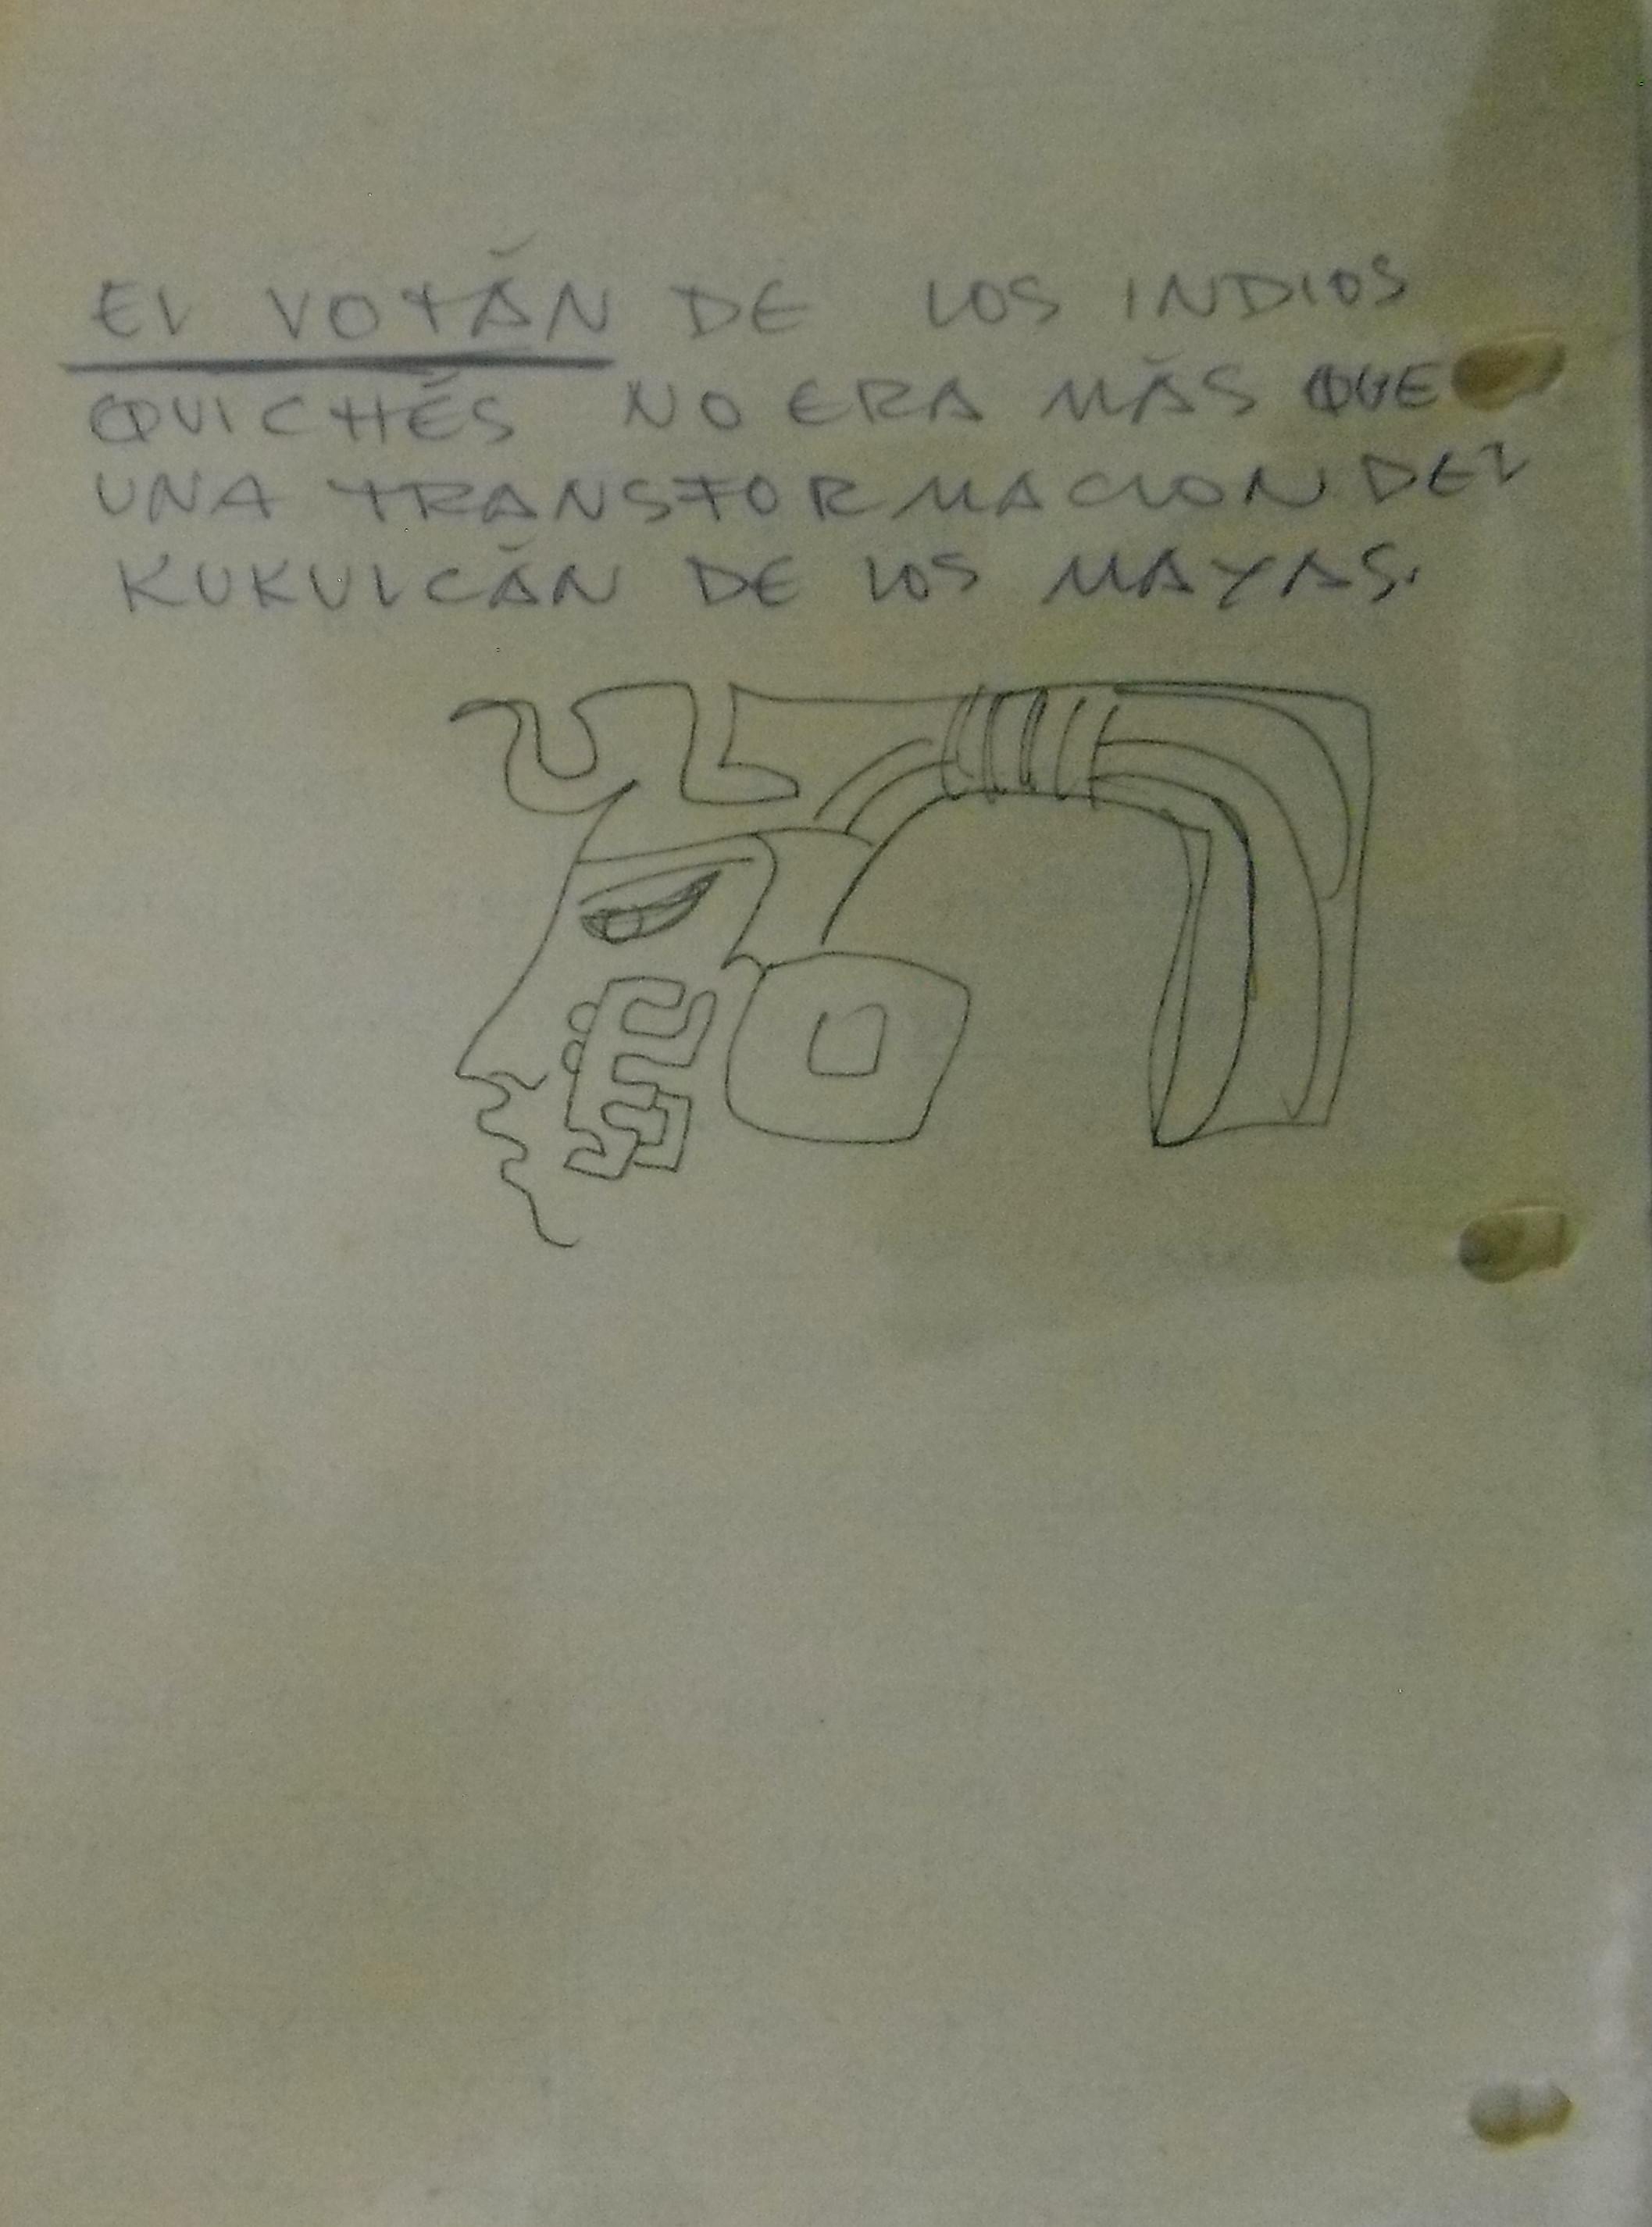 EL VOTÁN DE LOS INDIOS
QUICHÉS NO ERA MÁS QUE
UNA TRANSFORMACION DEL
KUKULCÁN DE LOS MAYAS.